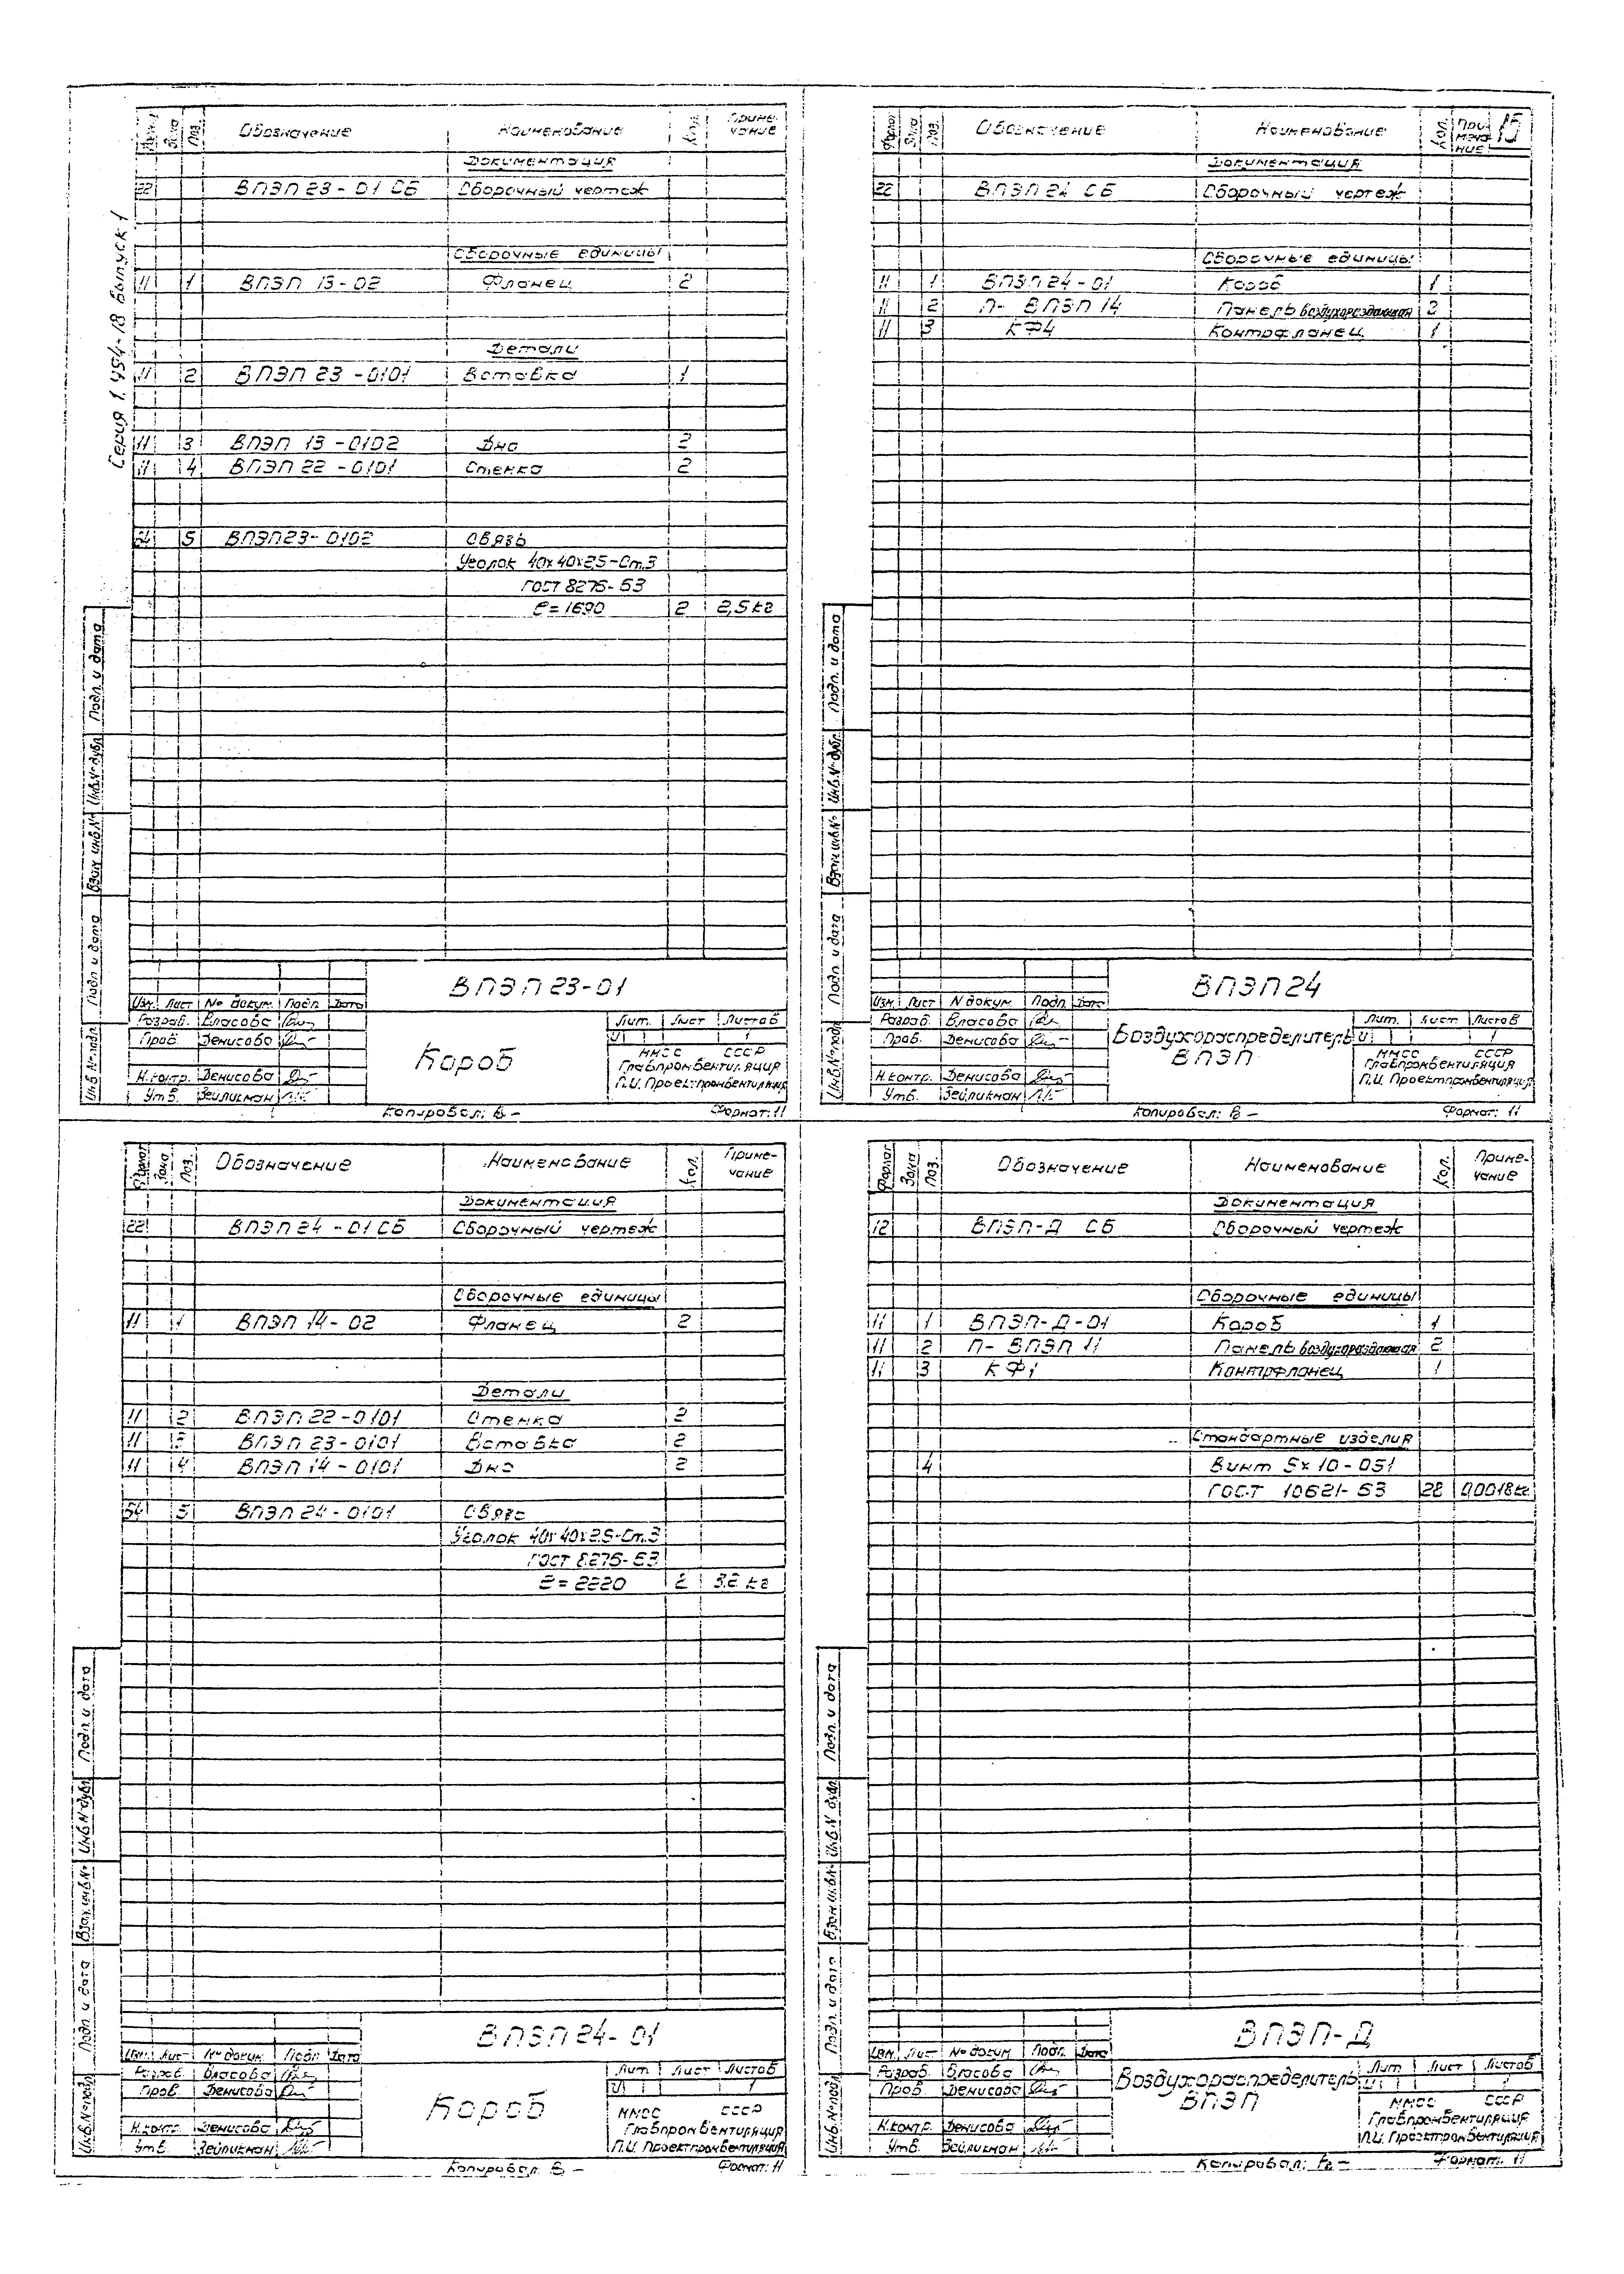 Серия 1.494-18 Выпуск 1
Формат Зона Поз. Обозначение Наименование Кол. Примечание
Документация
22 ВПЭП 23-01 СБ Сборочный чертеж
Сборочные единицы
11 1 ВПЭП 13-02 Фланец 2
Детали
11 2 ВПЭП 23-0101 Вставка 1
11 3 ВПЭП 13-0102 Дно 2
11 4 ВПЭП 22-0101 Стенка 2
5 ВПЭП23-0102 Обвязь
Уголок 40х40х2.5-Ст.3
ГОСТ 8276-63
ℓ=1690 2 2,5 кг
Подп. и дата
Инв.№ дубл.
Взам. инв.№
Подп. и дата
Инв.№ подл.
ВПЭП 23-01
Изм. Лист № докум. Подп. Дата
Разраб. Власова
Пров. Денисова
Н.контр. Денисова
Утв. Зейликман
Короб
Лит. Лист Листов
И 1
ММСС СССР
Главпромвентиляция
П.И. Проектпромвентиляция
Копировал: Формат: 11
Формат Зона Поз. Обозначение Наименование Кол. Примечание 15
Документация
22 ВПЭП 24 СБ Сборочный чертеж
Сборочные единицы
11 1 ВПЭП 24-01 Короб 1
11 2 П- ВПЭП 14 Панель воздухораздающая 2
11 3 КФ4 Контрфланец 1
Подп. и дата
Инв.№ дубл.
Взам. инв.№
Подп. и дата
Инв.№ подл.
ВПЭП24
Изм. Лист N докум. Подп. Дата
Разраб. Власова
Пров. Денисова
Н.контр. Денисова
Утв. Зейликман
Воздухораспределитель
ВПЭП
Лит. Лист Листов
И 1
ММСС СССР
Главпромвентиляция
П.И. Проектпромвентиляция
Копировал: Формат: 11
Формат Зона Поз. Обозначение Наименование Кол. Примечание
Документация
22 ВПЭП 24-01 СБ Сборочный чертеж
Сборочные единицы
11 1 ВПЭП 14-02 Фланец 2
Детали
11 2 ВПЭП 22-0101 Стенка 2
11 3 ВПЭП 23-0101 Вставка 2
11 4 ВПЭП 14-0101 Дно 2
5 ВПЭП 24-0101 Обвяз
Уголок 40х40х2.5-Ст.3
ГОСТ 8276-63
ℓ=2220 2 3.2 кг
Подп. и дата
Инв.№ дубл.
Взам. инв.№
Подп. и дата
Инв.№ подл.
ВПЭП24-01
Изм. Лист № докум. Подп. Дата
Разраб. Власова
Пров. Денисова
Н.контр. Денисова
Утв. Зейликман
Короб
Лит Лист Листов
И 1
ММСС СССР
Главпромвентиляция
П.И. Проектпромвентиляция
Копировал: Формат: 11
Формат Зона Поз. Обозначение Наименование Кол. Примечание
Документация
12 ВПЭП-Д СБ Сборочный чертеж
Сборочные единицы
11 1 ВПЭП-Д-01 Короб 1
11 2 П- ВПЭП 11 Панель воздухораздающая 2
11 3 КФ1 Контрфланец 1
Стандартные изделия
4 Винт 5х10-051
ГОСТ 10621-63 28 0,0018кг
Подп. и дата
Инв.N дубл.
Взам. инв.№
Подп. и дата
Инв.№ подл.
ВПЭП-Д
Изм. Лист № докум. Подп. Дата
Разраб. Власова
Пров. Денисова
Н.контр. Денисова
Утв. Зейликман
Воздухораспределитель
ВПЭП
Лит Лист Листов
И 1
ММСС СССР
Главпромвентиляция
П.И. Проектпромвентиляция
Копировал: Формат: 11